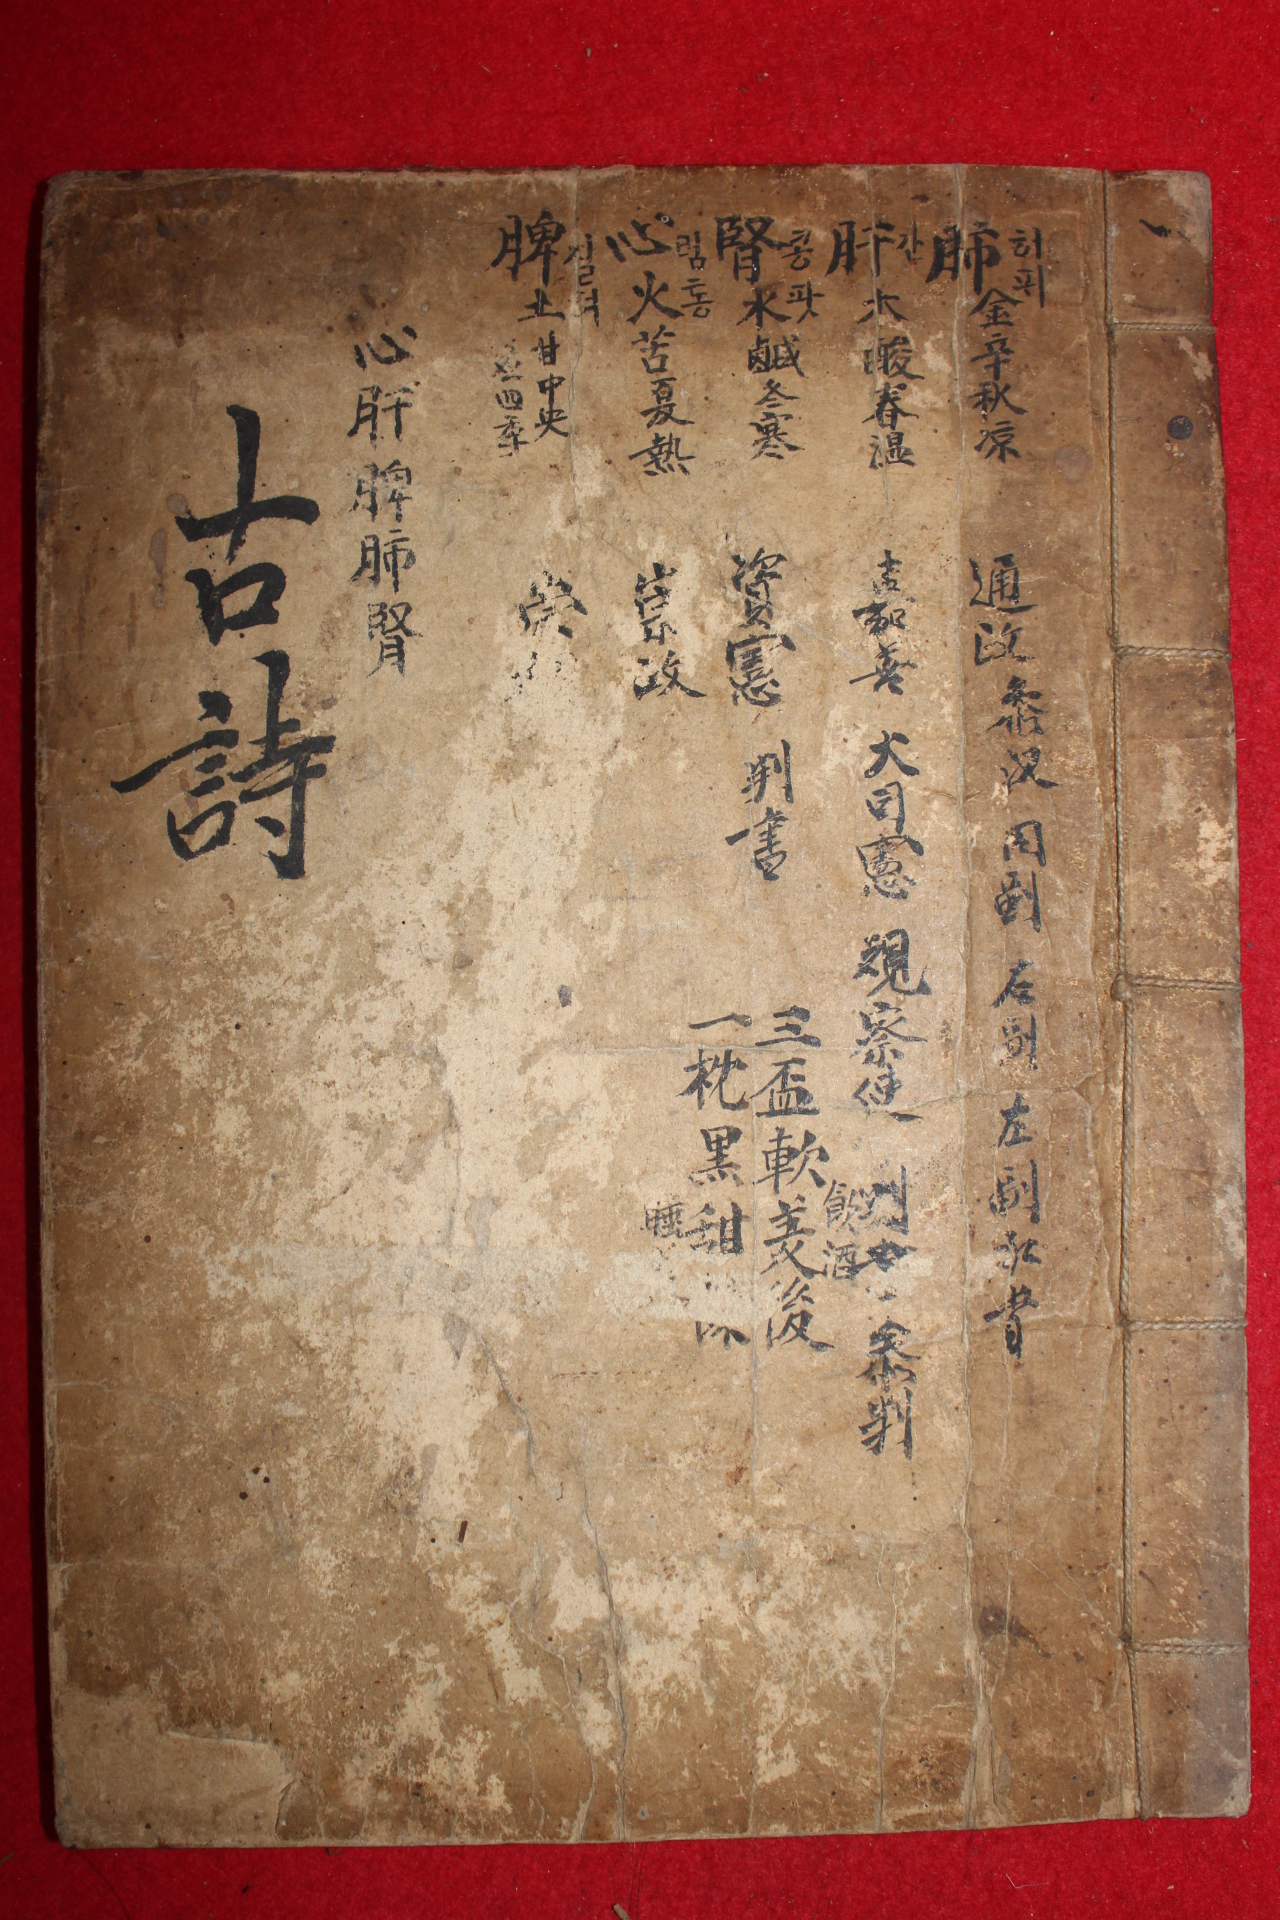 肺 허파 金辛秋凉
肝 간 木酸春溫
腎 콩팟 水鹹冬寒
心 렴통 火苦夏熱
脾 길허 土甘中央
四季
通政 參議 同副 右副 左副 承
嘉善 大司憲 觀察使 參判
資憲 判書
崇政
崇
三盃軟美後 飮酒
一枕黑甜 睡
心肝脾肺腎
古詩